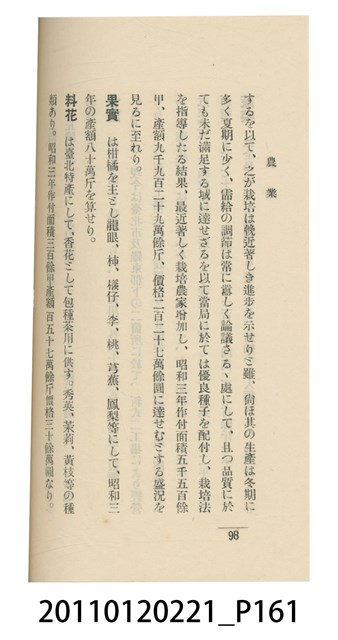 農業
するを以て、之が栽培は輓近著しき進步を示せりミ雖、尙ほ其の生產は冬期に
多く夏期に少く、需給の調節は常に喧しく論議さるゝ處にして、且つ品質に於
ても未だ滿足する域に達せざるを以て當局に於ては優良種子を配付し、栽培法
を指導したる結果、最近著しく栽培農家增加し、昭和三年作付面積五千五百餘
甲、產額九千九百二十九萬餘斤、價格二百二十七萬餘圓に達せむミする盛況を
見るに至れり。
果實　は柑橘を主ミし龍眼、柿、檨仔、李、桃、芎蕉、鳳梨等にして、昭和三
年の產額八十萬斤を算せり。
料花　は臺北特產にして、香花ミして包種茶用に供す。秀英、茉莉、黃枝等の種
類あり。昭和三年作付面積三百餘甲產額百五十七萬餘斤價格三十餘萬圓なり。
98
20110120221_P161